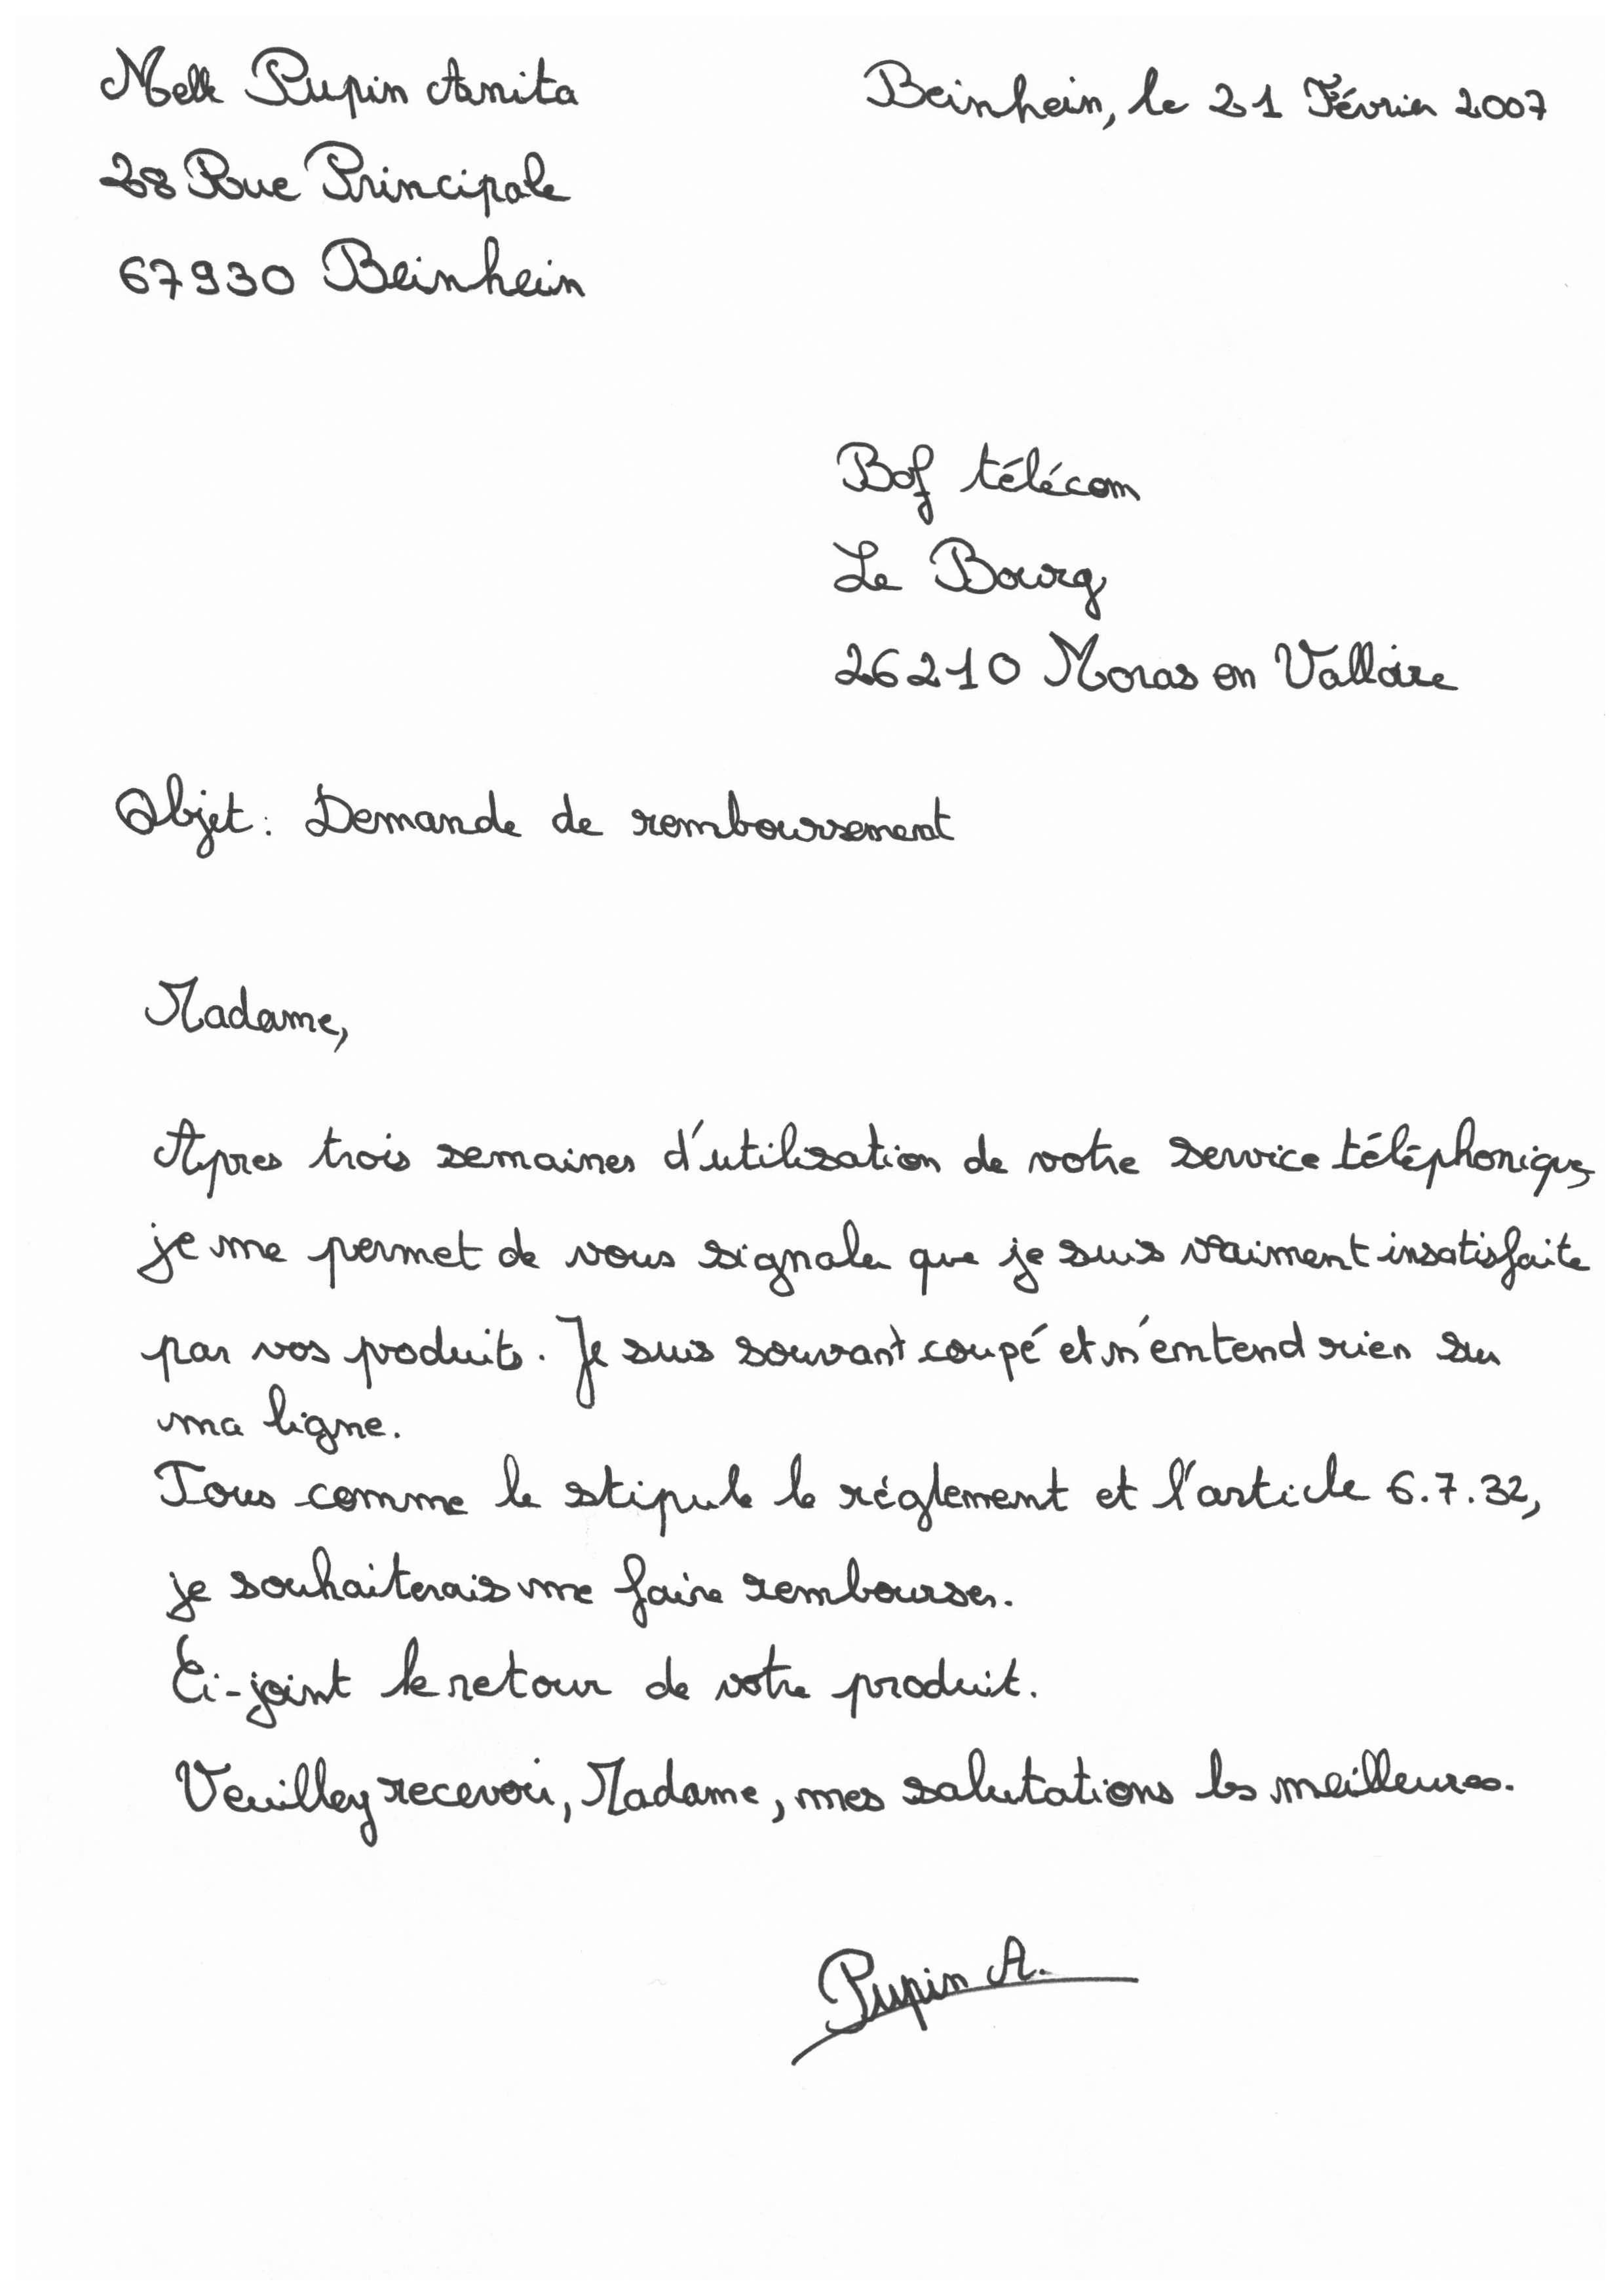 Melle Pupin Anita
Beinhein, le 21 Février 2007
28 Rue Principale
67930 Beinhein
Bof télécom
Le Bourg
26210 Moras en Valloire
Objet : Demande de remboursement
Madame,
Apres trois semaines d'utilisation de votre service téléphonique,
je me permet de vous signaler que je suis vraiment insatisfaite
par vos produits. Je suis souvant coupé et n'entend rien sur
ma ligne.
Tous comme le stipule le réglement et l'article 6.7.32,
je souhaiterais me faire rembourser.
Ci-joint le retour de votre produit.
Veuillez recevoir, Madame, mes salutations les meilleures.
Pupin A.